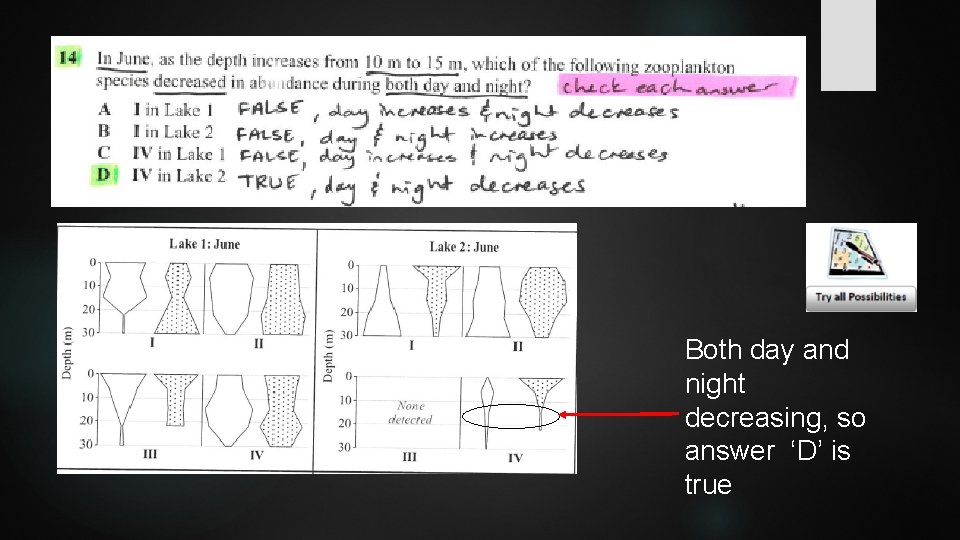 14 In June, as the depth increases from 10 m to 15 m, which of the following zooplankton
species decreased in abundance during both day and night? check each answer
A I in Lake 1 FALSE, day increases & night decreases
B I in Lake 2 FALSE, day & night increases
C IV in Lake 1 FALSE, day increases & night decreases
D IV in Lake 2 TRUE, day & night decreases
Lake 1: June
Depth (m)
0
10
20
30
I II
0
10
20
30
III IV
Lake 2: June
Depth (m)
0
10
20
30
I II
0
10
20
30
None
detected
III IV
Try all Possibilities
Both day and
night
decreasing, so
answer ‘D’ is
true